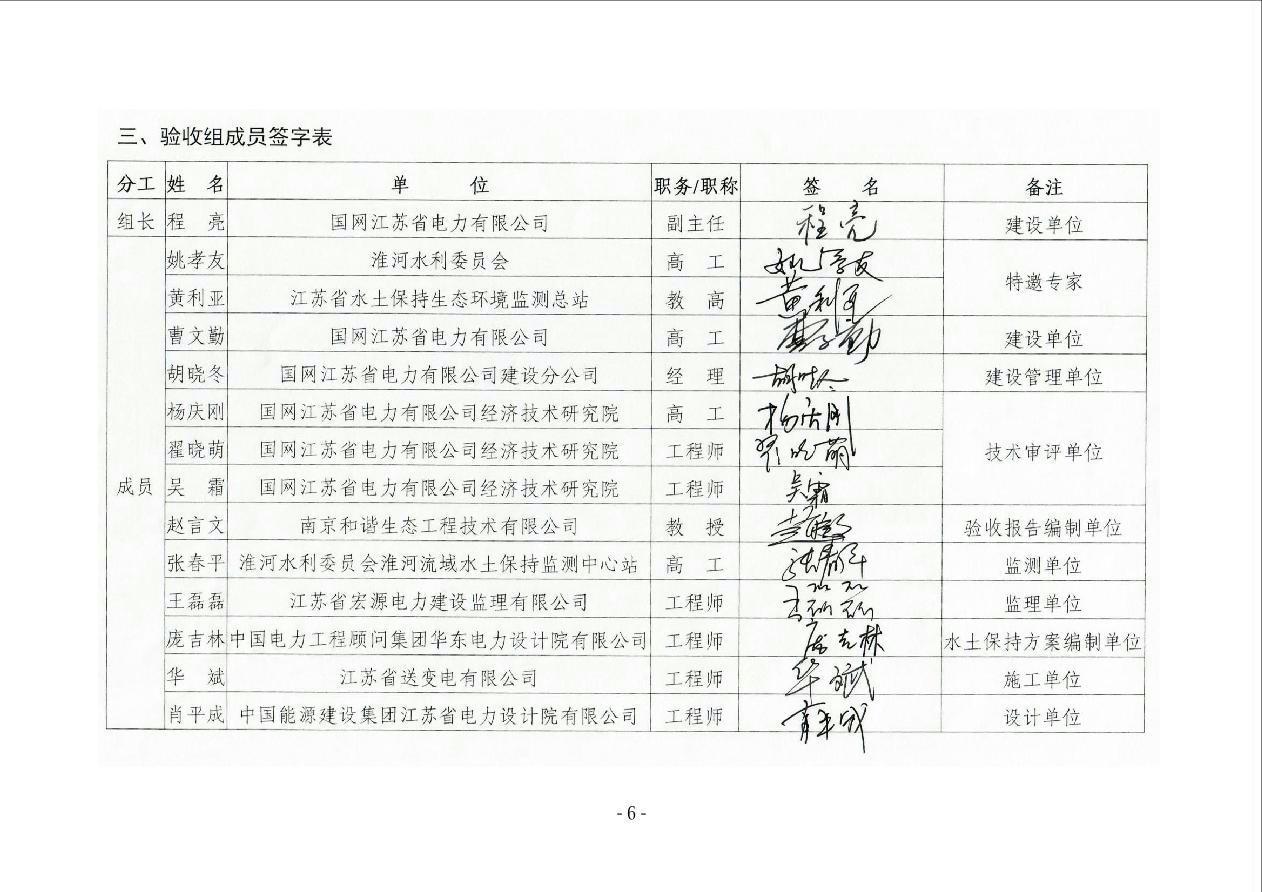 三、验收组成员签字表
分工 姓 名 单 位 职务/职称 签 名 备注
组长 程 亮 国网江苏省电力有限公司 副主任 程亮 建设单位
姚孝友 淮河水利委员会 高 工 姚孝友
特邀专家
黄利亚 江苏省水土保持生态环境监测总站 教 高 黄利亚
曹文勤 国网江苏省电力有限公司 高 工 曹文勤 建设单位
胡晓冬 国网江苏省电力有限公司建设分公司 经 理 胡晓冬 建设管理单位
杨庆刚 国网江苏省电力有限公司经济技术研究院 高 工 杨庆刚
翟晓萌 国网江苏省电力有限公司经济技术研究院 工程师 翟晓萌 技术审评单位
成员 吴 霜 国网江苏省电力有限公司经济技术研究院 工程师 吴霜
赵言文 南京和谐生态工程技术有限公司 教 授 验收报告编制单位
张春平 淮河水利委员会淮河流域水土保持监测中心站 高 工 张春平 监测单位
王磊磊 江苏省宏源电力建设监理有限公司 工程师 王磊磊 监理单位
庞吉林 中国电力工程顾问集团华东电力设计院有限公司 工程师 庞吉林 水土保持方案编制单位
华 斌 江苏省送变电有限公司 工程师 华斌 施工单位
肖平成 中国能源建设集团江苏省电力设计院有限公司 工程师 肖平成 设计单位
- 6 -